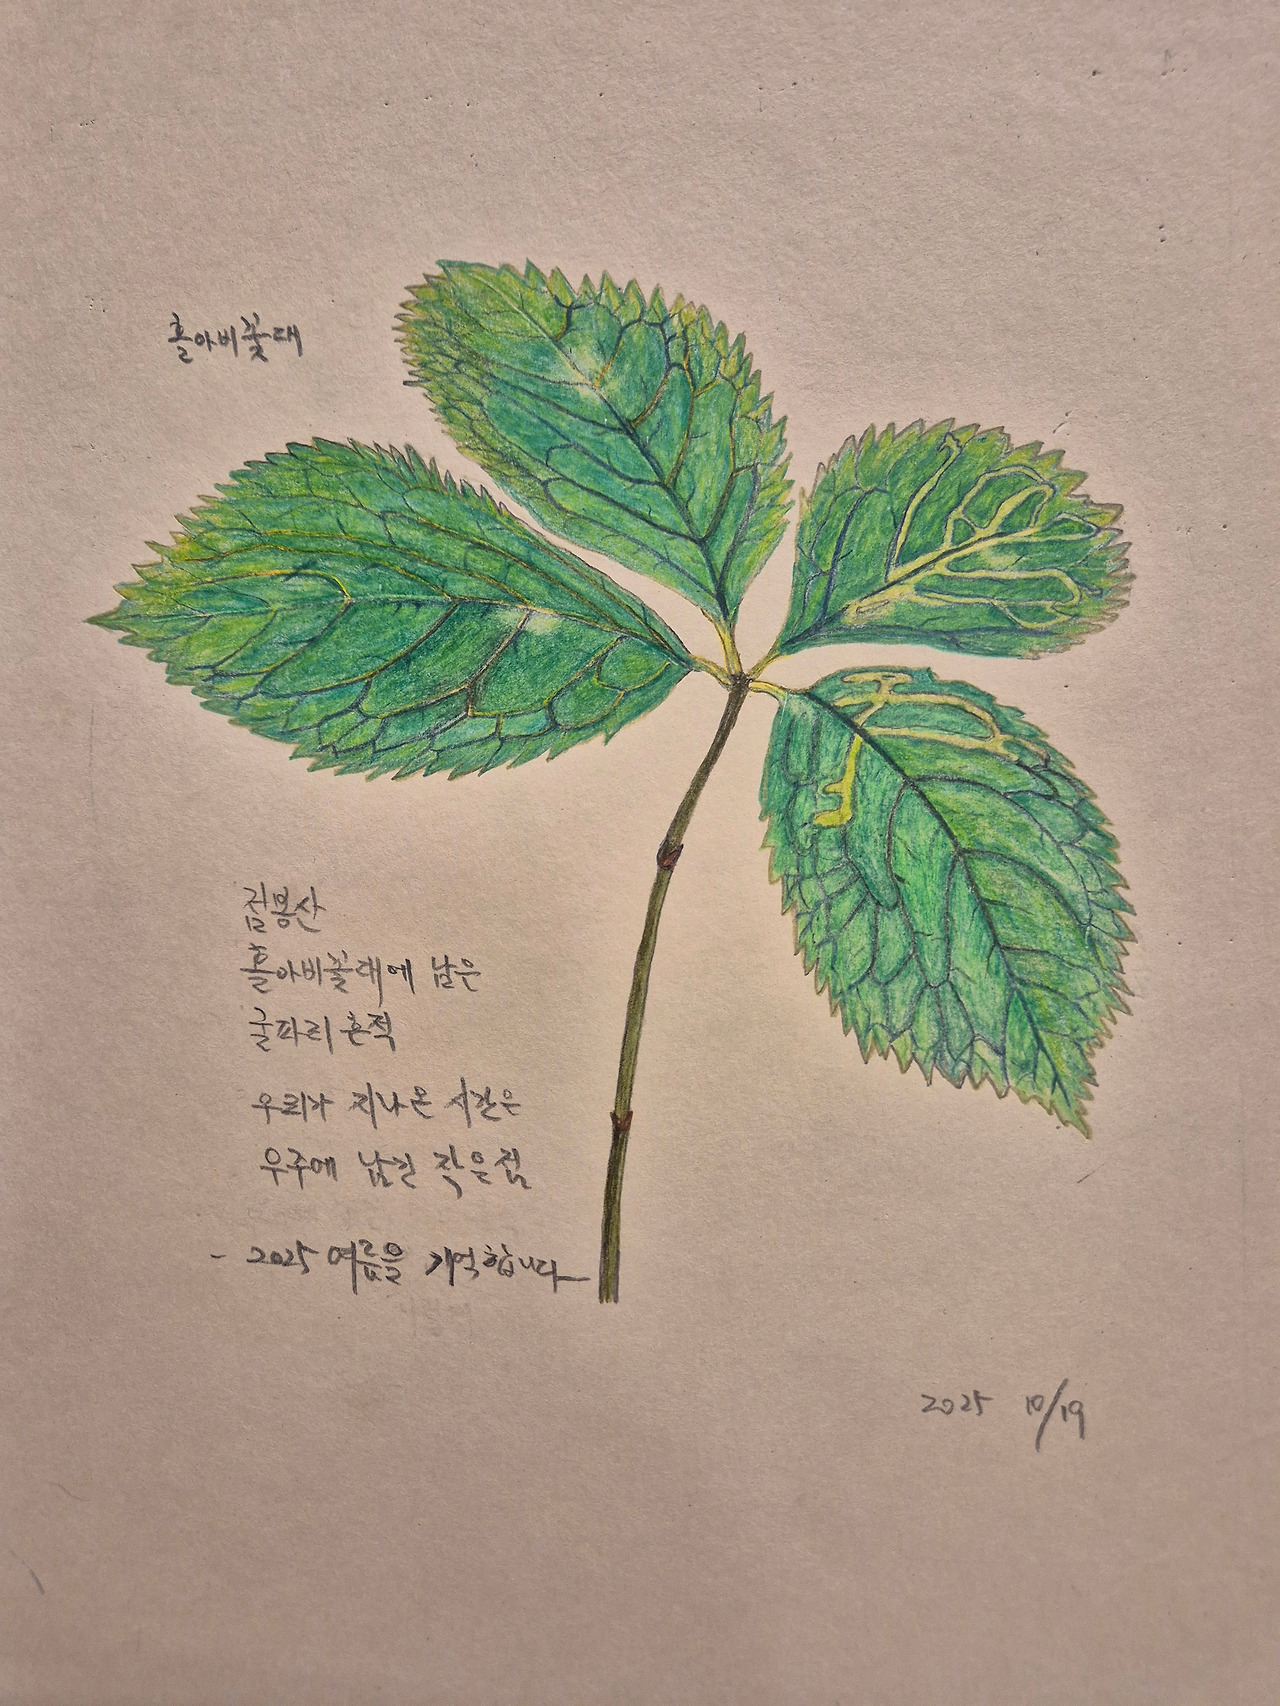 홀아비꽃대
점봉산
홀아비꽃대에 남은
굴파리 흔적
우리가 지나온 시간은
우주에 남긴 작은점
- 2025 여름을 기억합니다
2025 10/19